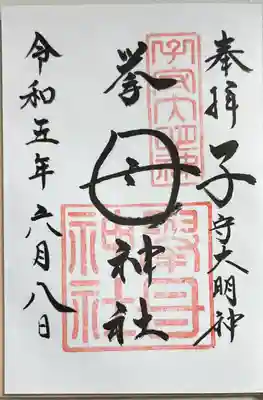 奉拝 子守大明神
挙母神社
令和五年六月八日
子守大明神
挙母神社